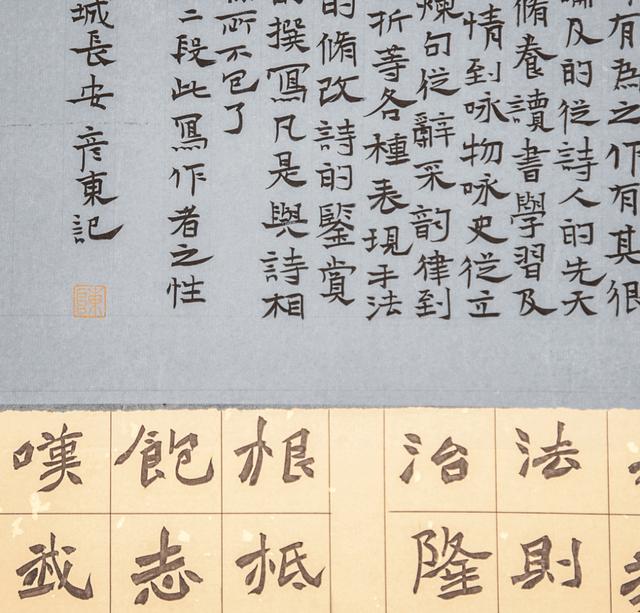 有為之作有其很
及的從詩人的先天
脩養讀書學習及
情到咏物咏史從立
煉句從辭采韵律到
折等各種表現手法
的脩改詩的鑒賞
的撰寫凡是與詩相
所不包了
二段此寫作者之性
城長安彦東記
法則
治隆
根柢
飽志
嘆